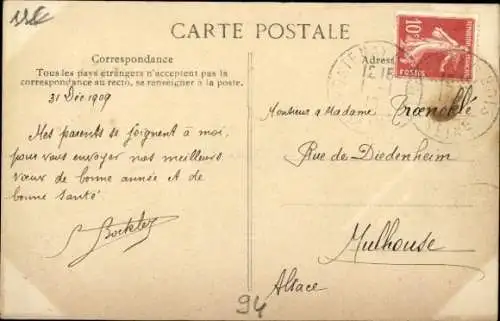 CARTE POSTALE
Correspondance
Tous les pays étrangers n'acceptent pas la
correspondance au recto, se renseigner à la poste.
31 Déc 1909
Mes parents se joignent à moi,
pour vous envoyer nos meilleurs
vœux de bonne année et de
bonne santé
Adres
10c
POSTES
Monsieur & Madame
Rue de Diedenheim
Mulhouse
Alsace
94